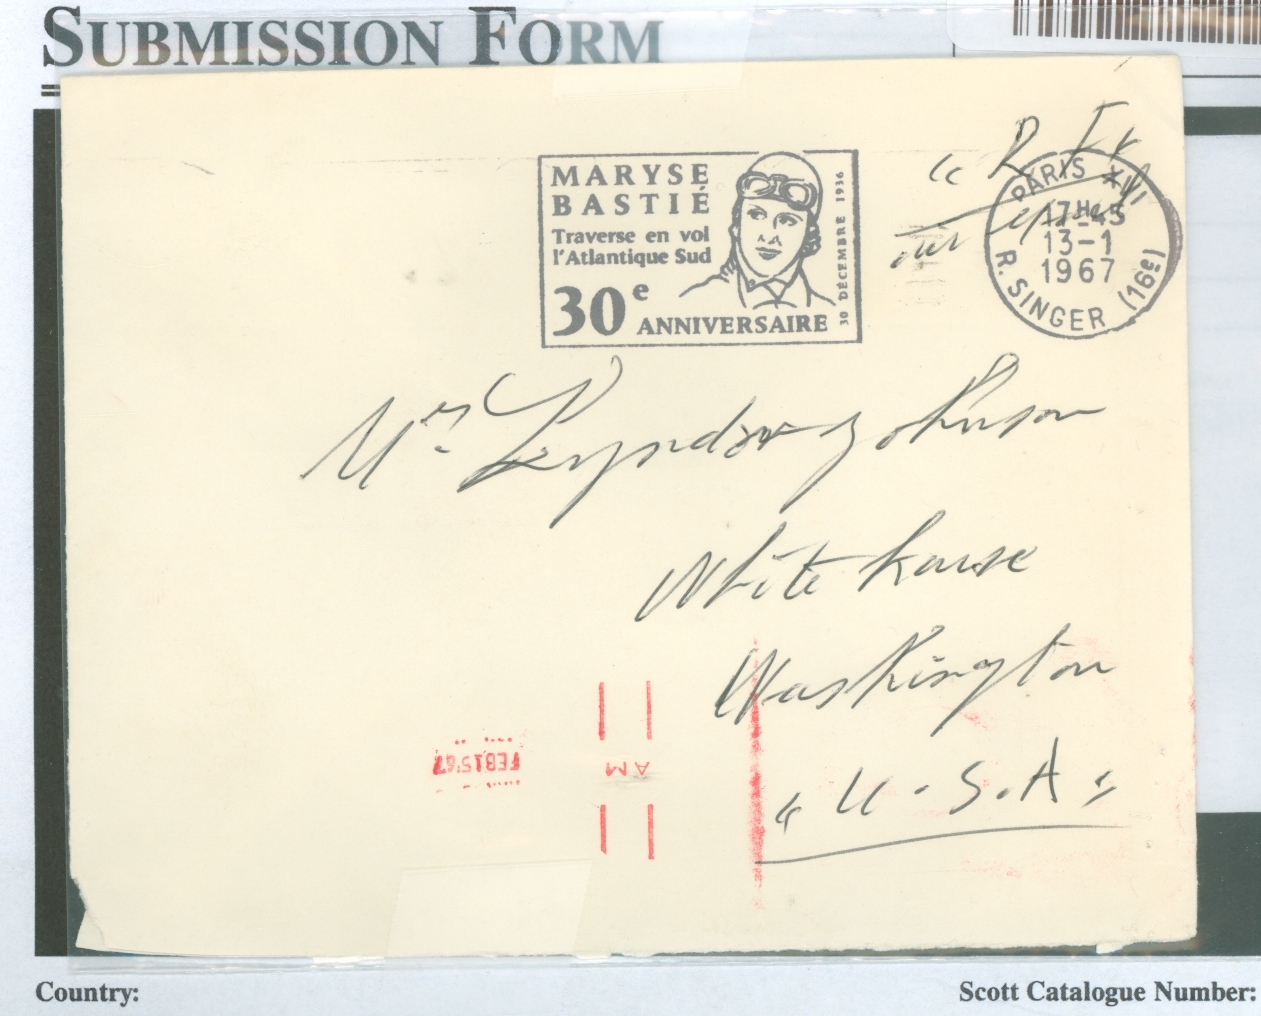 SUBMISSION FORM
MARYSE
BASTIÉ
Traverse en vol
l'Atlantique Sud
30e ANNIVERSAIRE
30 DÉCEMBRE 1936
PARIS XVI
17H-45
13-1
1967
R. SINGER (16e)
Mrs Lyndon Johnson
White house
Washington
"U.S.A"
FEB 15 '67
AM
Country:
Scott Catalogue Number: